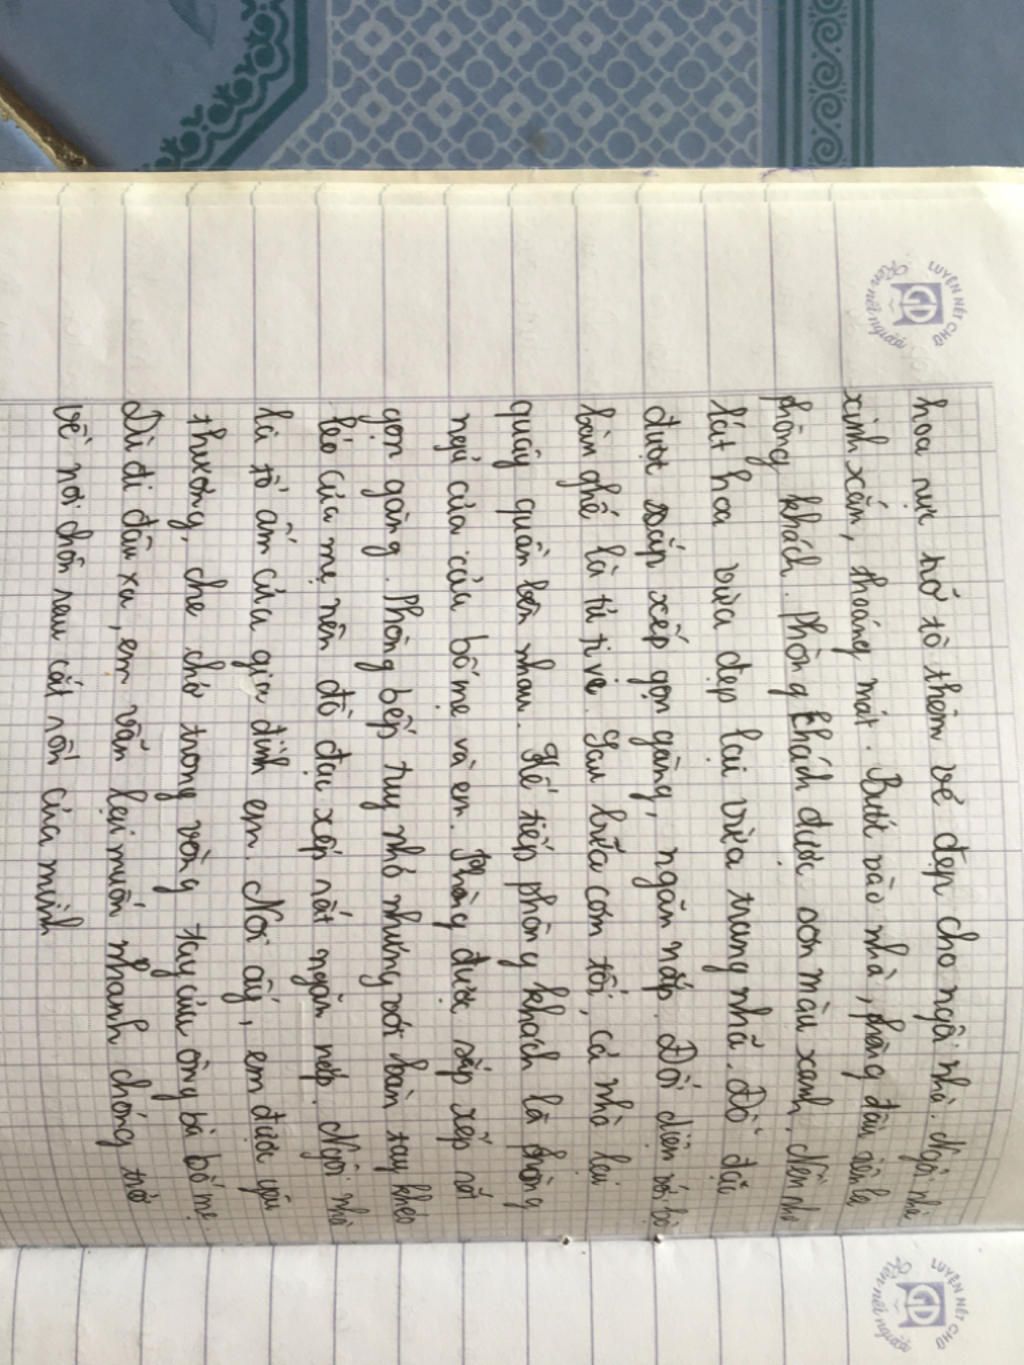 LUYỆN NÉT CHỮ
GD
Rèn nết người
hoa rực rỡ tô thêm vẻ đẹp cho ngôi nhà. Ngôi nhà
xinh xắn, thoáng mát. Bước vào nhà, phòng đầu tiên là
phòng khách. Phòng khách được sơn màu xanh. Nền nhà
lát hoa vừa đẹp lại vừa trang nhã. Đồ đạc
được sắp xếp gọn gàng, ngăn nắp. Đối diện với bộ
bàn ghế là tủ ti vi. Sau bữa cơm tối, cả nhà lại
quây quần bên nhau. Kế tiếp phòng khách là phòng
ngủ của của bố mẹ và em. Phòng được sắp xếp rất
gọn gàng. Phòng bếp tuy nhỏ nhưng với bàn tay khéo
léo của mẹ nên đồ đạc xếp rất ngăn nắp. Ngôi nhà
là tổ ấm của gia đình em. Nơi ấy, em được yêu
thương, che chở trong vòng tay của ông bà bố mẹ
Dù đi đâu xa, em vẫn lại muốn nhanh chóng trở
về nơi chôn rau cắt rốn của mình
LUYỆN NÉT CHỮ
GD
Rèn nết người